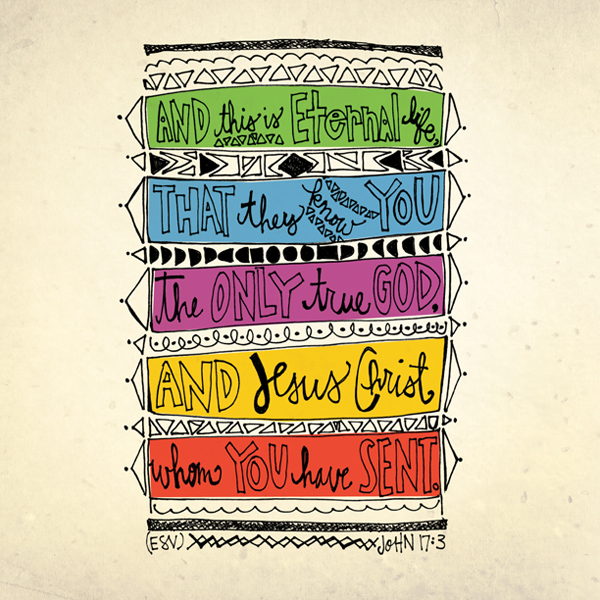 AND this is Eternal life,
THAT they know YOU
the ONLY true GOD,
AND Jesus Christ
whom YOU have SENT.
(ESV) JOHN 17:3